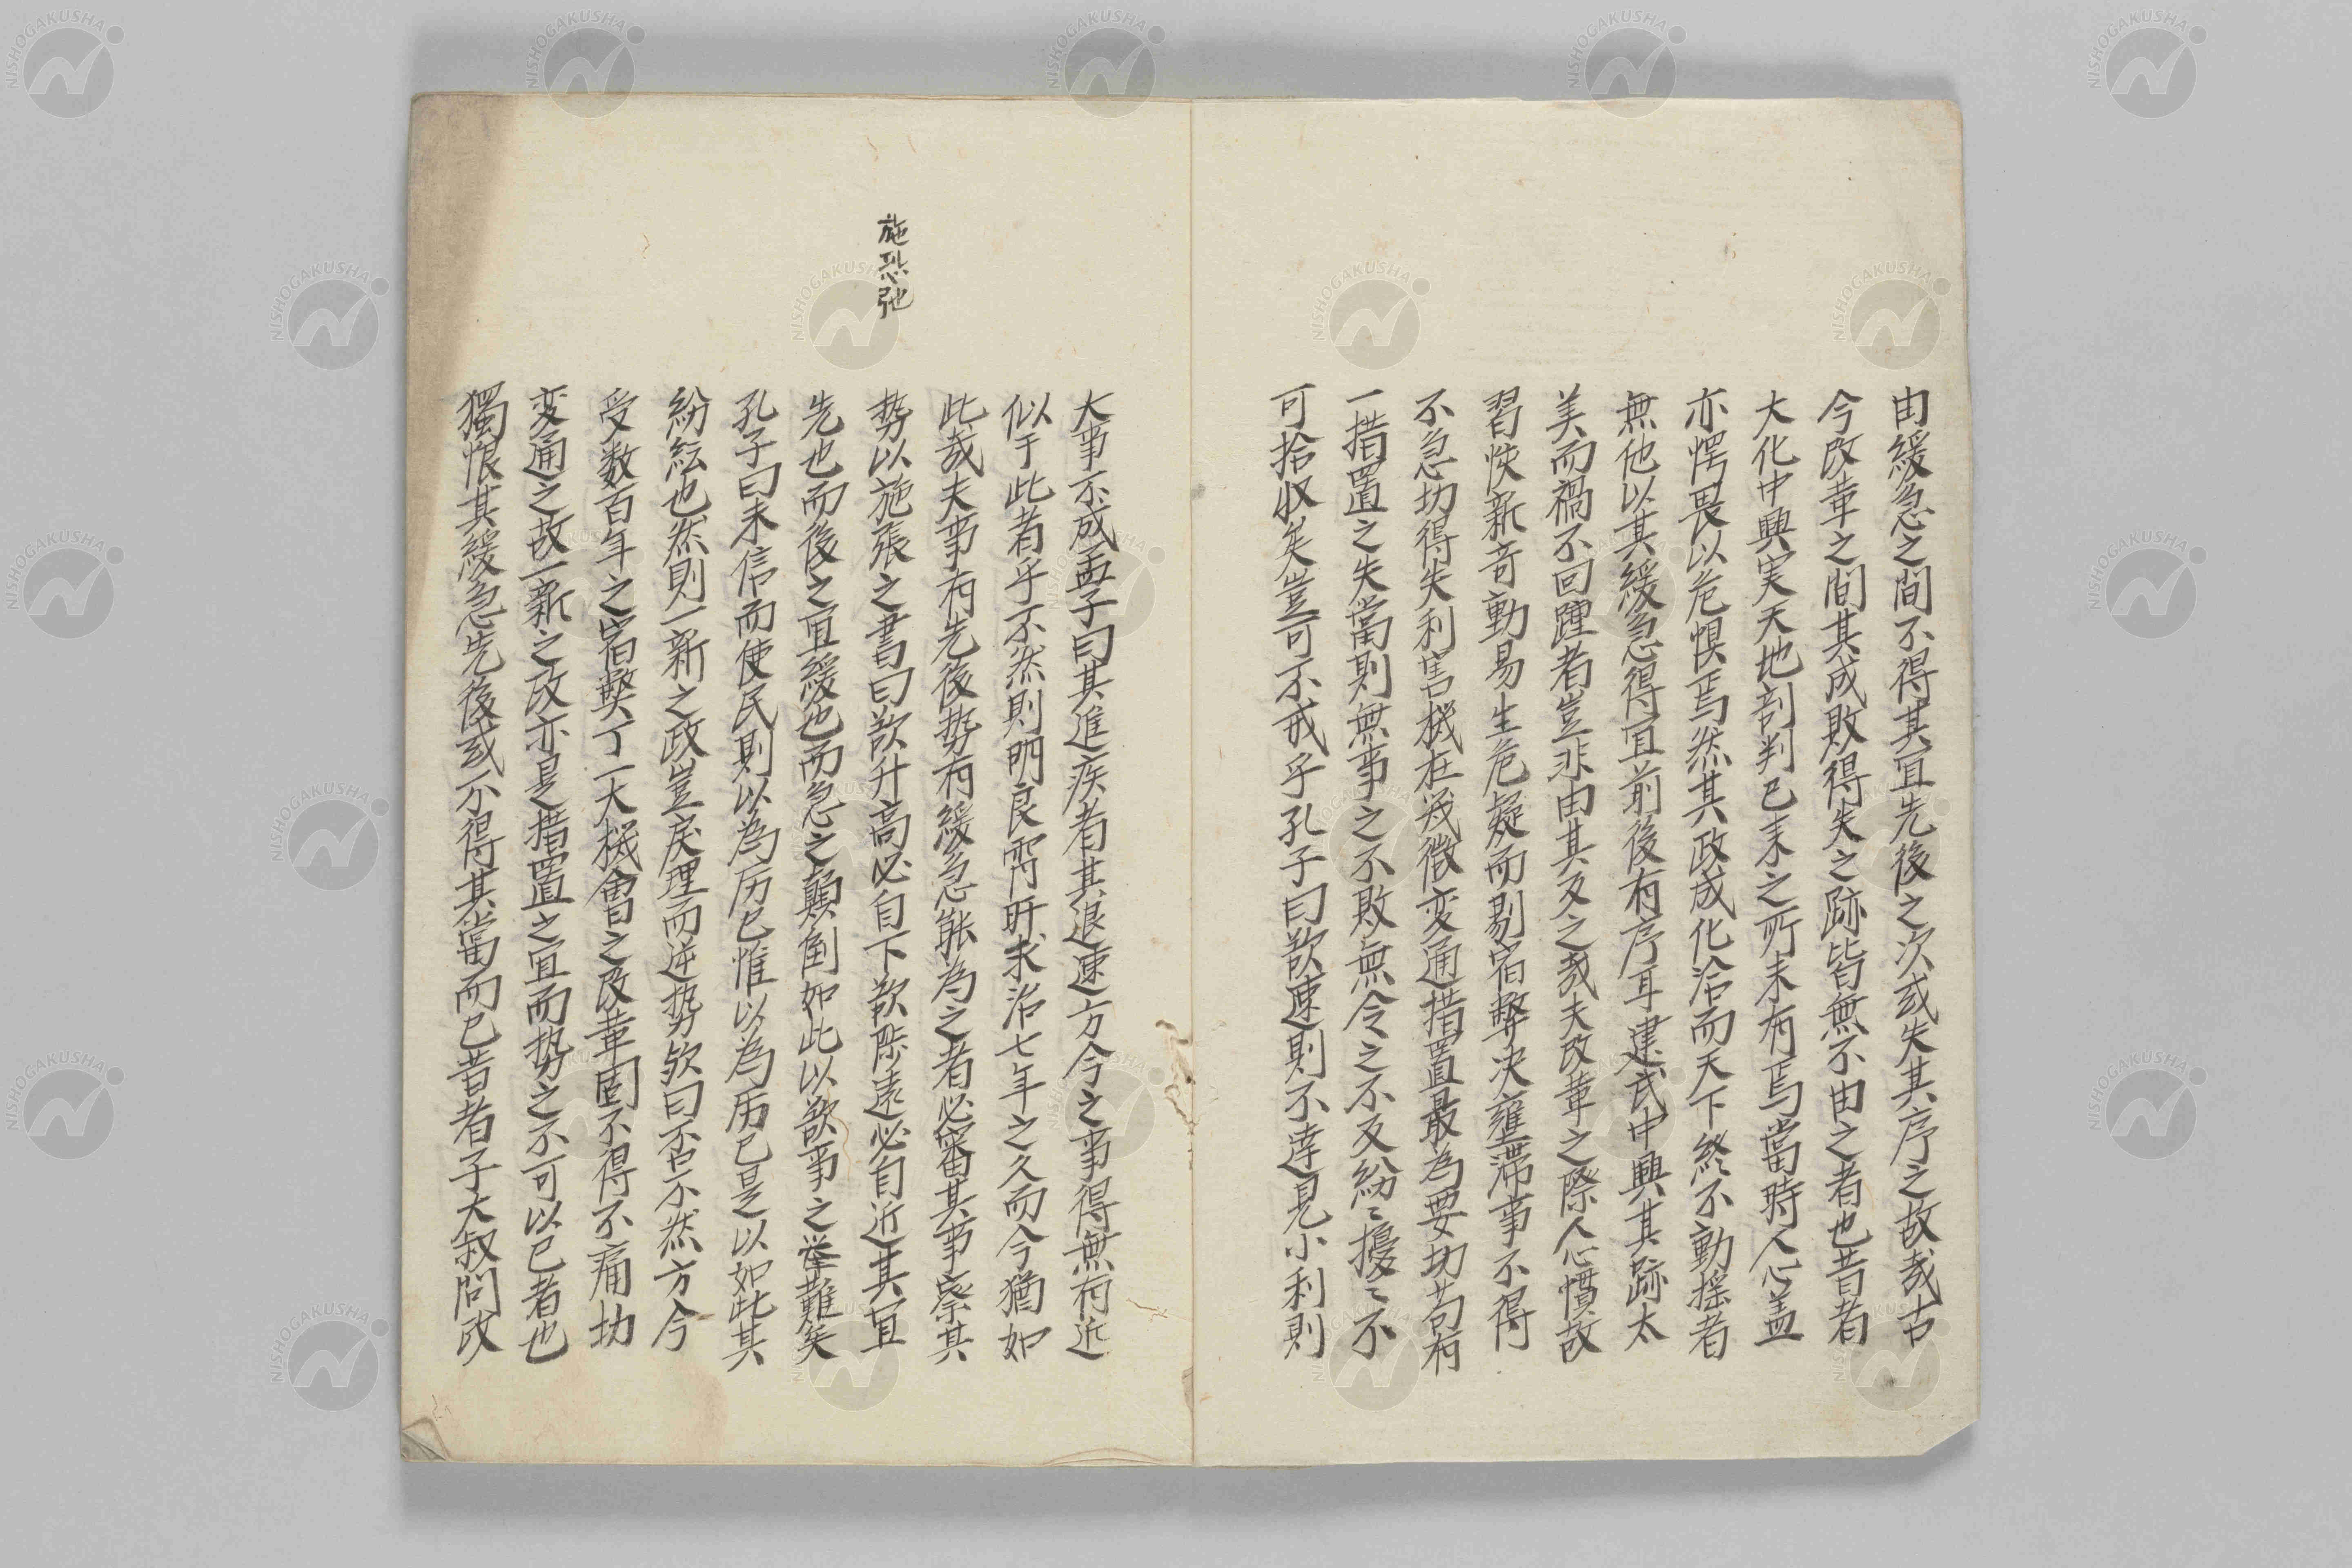 由緩急之間不得其宜先後之次或失其序之故哉古
今改革之間其成敗得失之跡皆無不由之者也昔者
大化中興実天地剖判已来之所未有焉當時人心盖
亦愕畏以危惧焉然其政成化洽而天下終不動揺者
無他以其緩急得宜前後有序耳建武中興其跡太
美而禍不回踵者豈非由其反之哉夫改革之際人心慣故
習怏新奇動易生危疑而剔宿弊决壅滞事不得
不急切得失利害機在幾微変通措置最為要切苟有
一措置之失當則無事之不敗無令之不反紛〻擾〻不
可拾収矣豈可不戒乎孔子曰欲速則不達見小利則
大事不成孟子曰其進疾者其退速方今之事得無有近
似于此者乎不然則明良宵旰求治七年之久而今猶如
此哉夫事有先後勢有緩急能為之者必審其事察其
勢以施張之書曰欲升高必自下欲陟遠必自近其宜
先也而後之宜緩也而急之顛倒如此以欲事之挙難矣
孔子曰未信而使民則以為厉已惟以為厉已是以如此其
紛紜也然則一新之政豈戻理而逆勢欤曰否不然方今
受数百年之宿弊丁一大機會之改革固不得不痛切
変通之故一新之改亦是措置之宜而勢之不可以已者也
獨恨其緩急先後或不得其當而已昔者子大叔問政
施恐弛
NISHOGAKUSHA